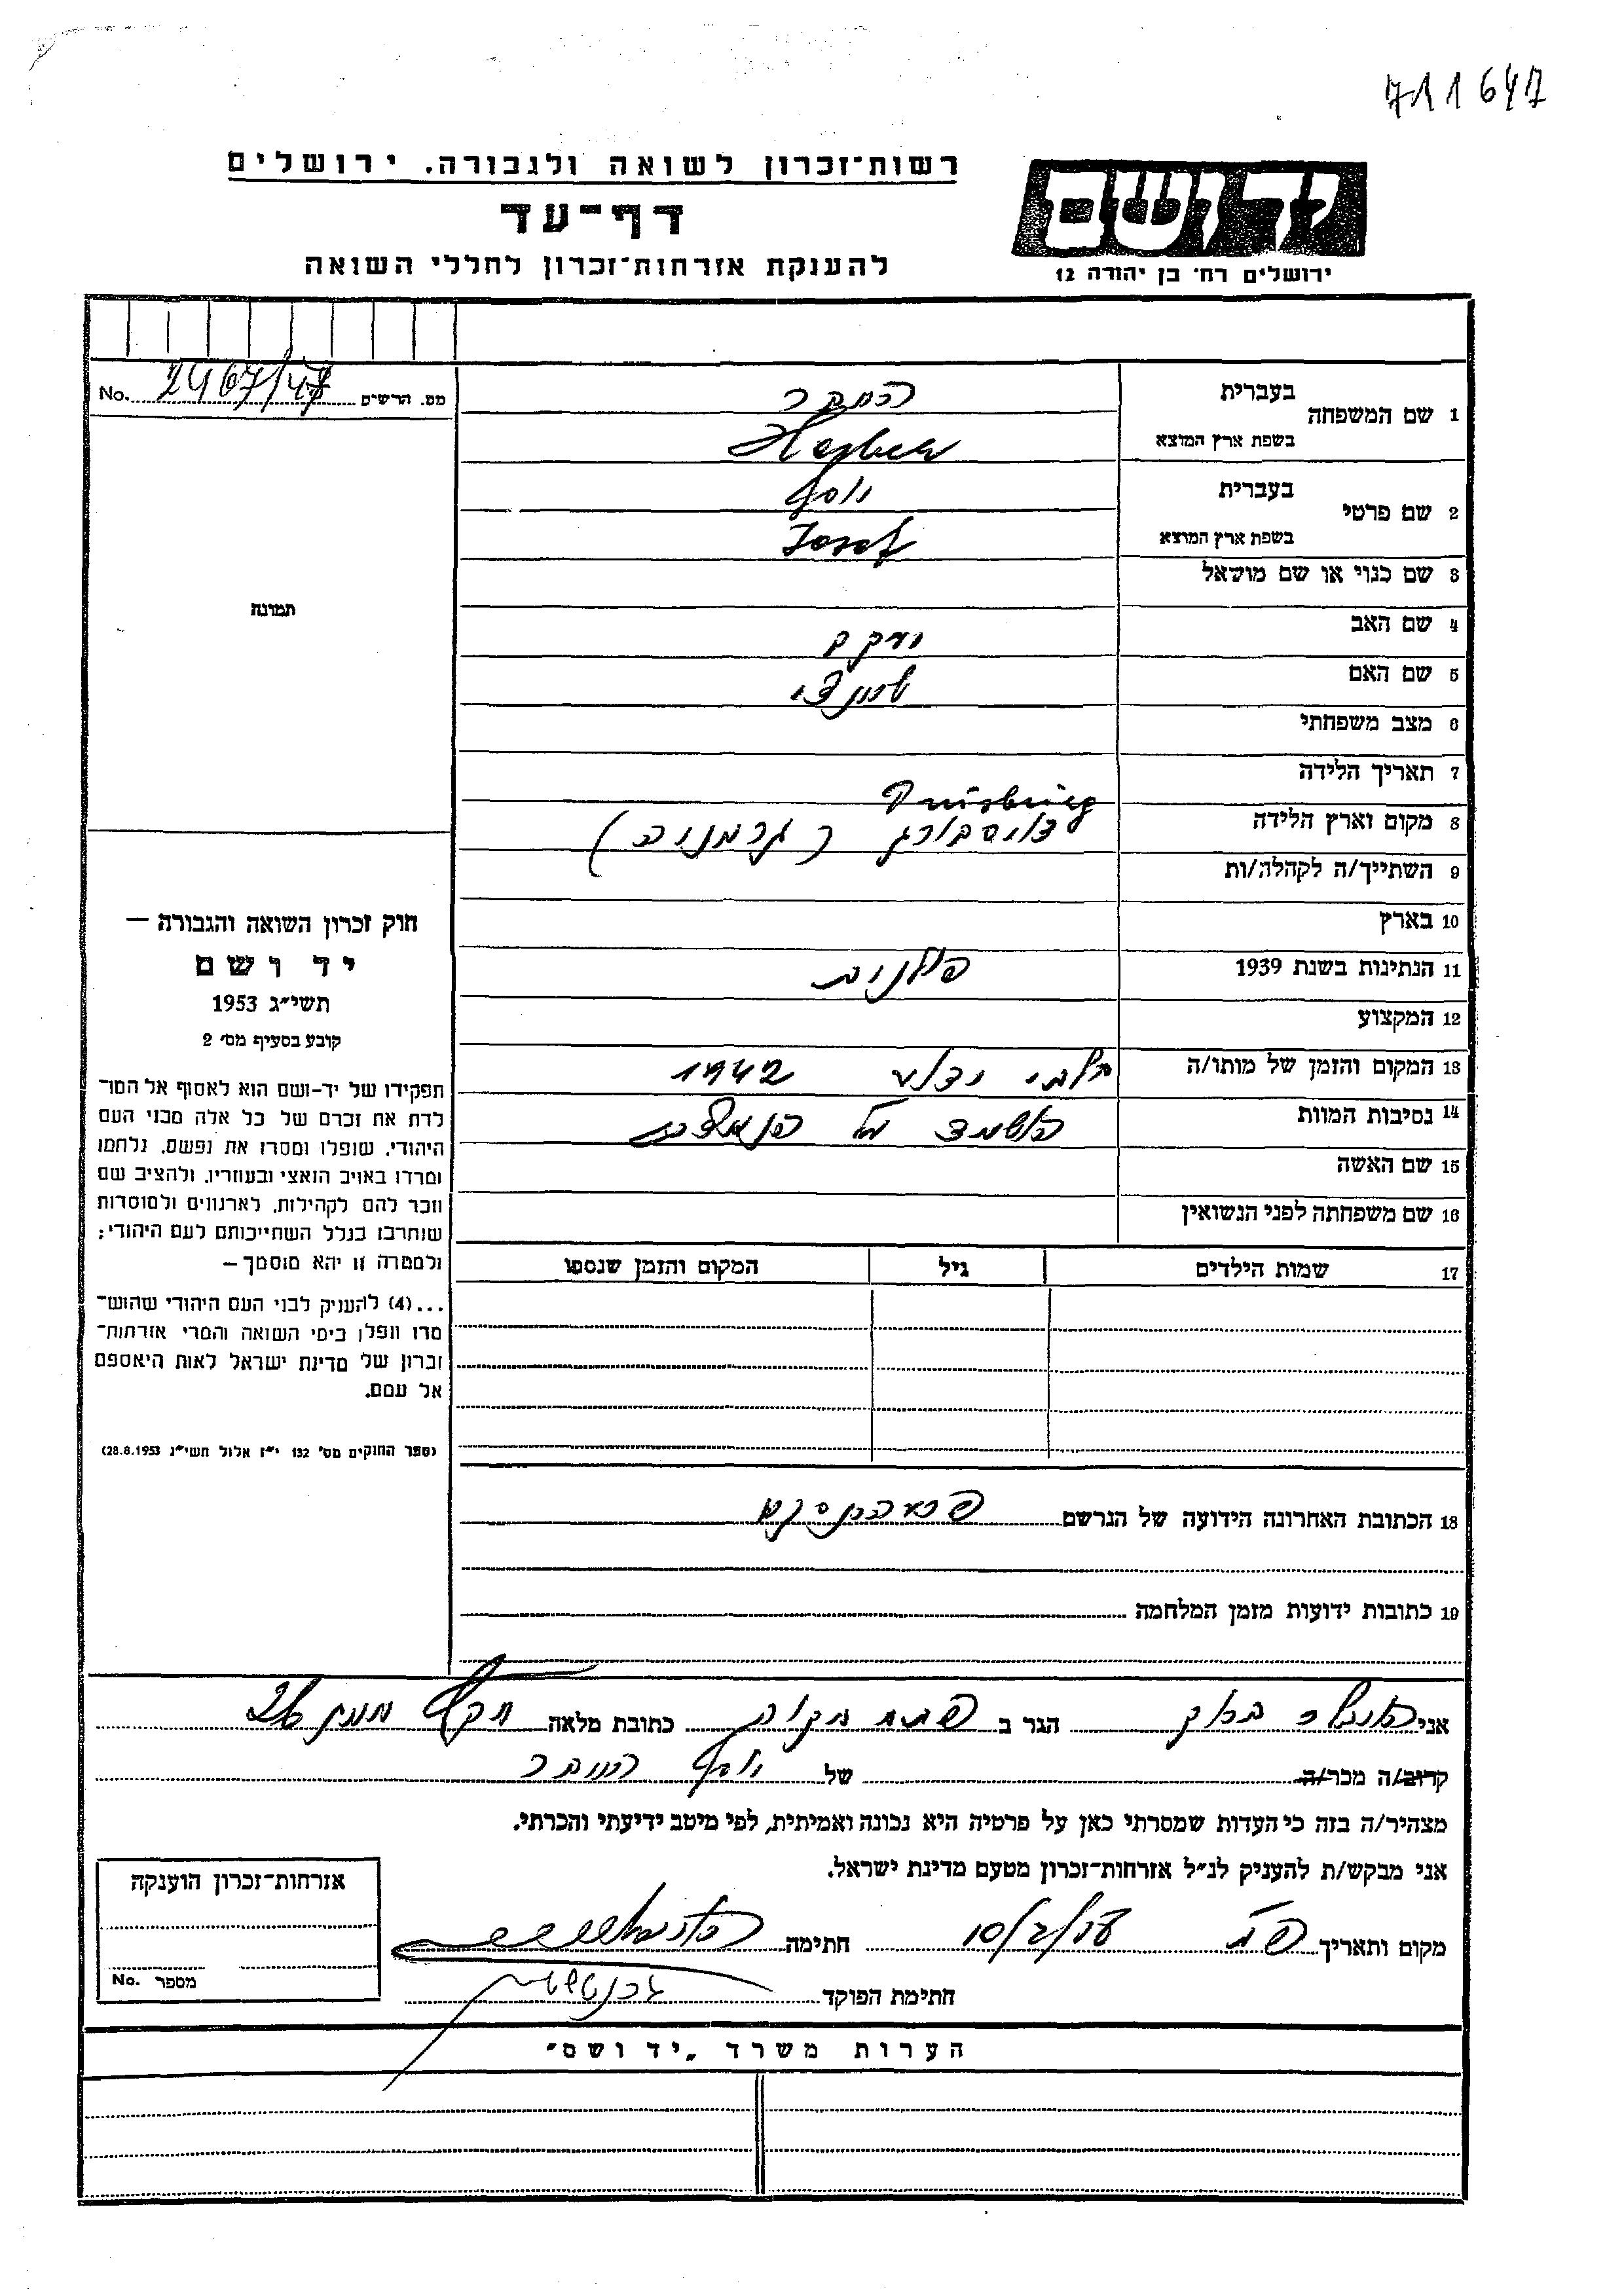 711647
רשות־זכרון לשואה ולגבורה, ירושלים
דף־עד
להענקת אזרחות־זכרון לחללי השואה
יד ושם
ירושלים רח׳ בן יהודה 12
מס. הרשים No. 2467/47
תמונה
חוק זכרון השואה והגבורה —
יד ושם
תשי״ג 1953
קובע בסעיף מס׳ 2
תפקידו של יד-ושם הוא לאסוף אל המו־
לדת את זכרם של כל אלה מבני העם
היהודי, שנפלו ומסרו את נפשם, נלחמו
ומרדו באויב הנאצי ובעוזריו, ולהציב שם
וזכר להם לקהילות, לארגונים ולמוסדות
שנחרבו בגלל השתייכותם לעם היהודי;
ולמטרה זו יהא מוסמך —
...(4) להעניק לבני העם היהודי שהוש־
מדו ונפלו בימי השואה והמרי אזרחות־
זכרון של מדינת ישראל לאות היאספם
אל עמם.
(ספר החוקים מס׳ 132 י״ז אלול תשי״ג 28.8.1953)
1 שם המשפחה בעברית
בשפת ארץ המוצא
2 שם פרטי בעברית יוסף
בשפת ארץ המוצא Josef
3 שם כנוי או שם מושאל
4 שם האב יעקב
5 שם האם
6 מצב משפחתי
7 תאריך הלידה
Duisburg
8 מקום וארץ הלידה דויסבורג (גרמניה)
9 השתייך/ה לקהלה/ות
10 בארץ
11 הנתינות בשנת 1939 פולנית
12 המקצוע
13 המקום והזמן של מותו/ה בלתי ידוע 1942
14 נסיבות המוות הושמד ע"י הנאצים
15 שם האשה
16 שם משפחתה לפני הנשואין
17 שמות הילדים גיל המקום והזמן שנספו
18 הכתובת האחרונה הידועה של הנרשם
19 כתובות ידועות מזמן המלחמה
אני הגר ב פתח תקוה כתובת מלאה
קרוב/ה מכר/ה של יוסף
מצהיר/ה בזה כי העדות שמסרתי כאן על פרטיה היא נכונה ואמיתית, לפי מיטב ידיעתי והכרתי.
אני מבקש/ת להעניק לנ״ל אזרחות־זכרון מטעם מדינת ישראל.
מקום ותאריך פ"ת חתימה
חתימת הפוקד
אזרחות־זכרון הוענקה
מספר No.
הערות משרד „יד ושם״